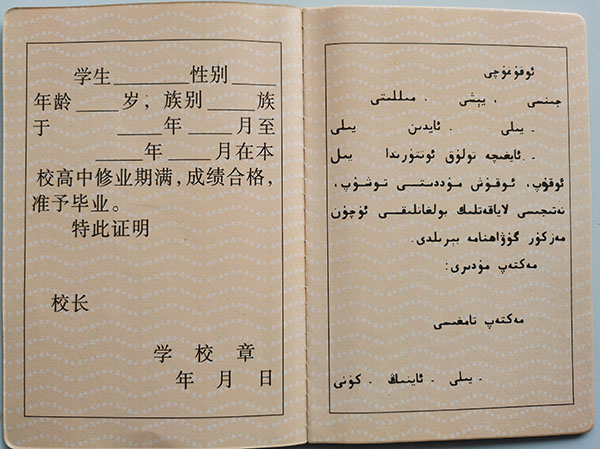 学生________性别____
年龄____岁，族别_____族
于____年____月至
____年____月在本
校高中修业期满，成绩合格，
准予毕业。
特此证明
校长
学 校 章
年 月 日
ئوقۇغۇچى
جىنسى ، يېشى . مىللىتى
- يىلى - ئايدىن يىلى
- ئايغىچە تولۇق ئوتتۇرىدا يىل
ئوقۇپ، ئوقۇش مۇددىتى توشۇپ،
نەتىجىسى لاياقەتلىك بولغانلىقى ئۈچۈن
مەزكۇر گۇۋاھنامە بېرىلدى.
مەكتەپ مۇدىرى:
مەكتەپ تامغىسى
- يىلى - ئاينىڭ - كۈنى